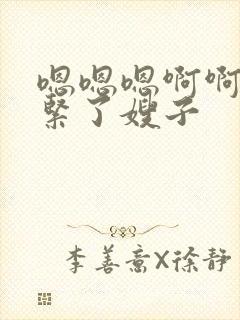 嗯嗯嗯啊啊
紧了嫂子
李善斋X徐静